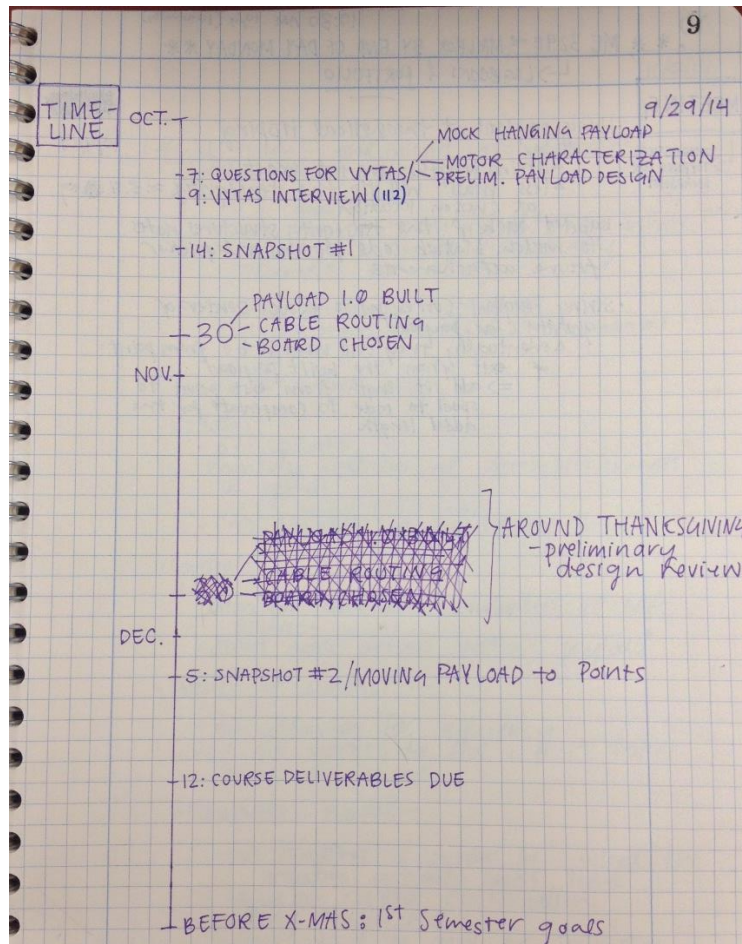 9
9/29/14
TIME-
LINE
OCT.
MOCK HANGING PAYLOAD
MOTOR CHARACTERIZATION
7: QUESTIONS FOR VYTAS
PRELIM. PAYLOAD DESIGN
9: VYTAS INTERVIEW (112)
14: SNAPSHOT #1
PAYLOAD 1.0 BUILT
30
CABLE ROUTING
BOARD CHOSEN
NOV.
PAYLOAD 1.0 BUILT
CABLE ROUTING
BOARD CHOSEN
AROUND THANKSGIVING
-preliminary
design Review
DEC.
5: SNAPSHOT #2/MOVING PAYLOAD to Points
12: COURSE DELIVERABLES DUE
BEFORE X-MAS: 1st Semester goals